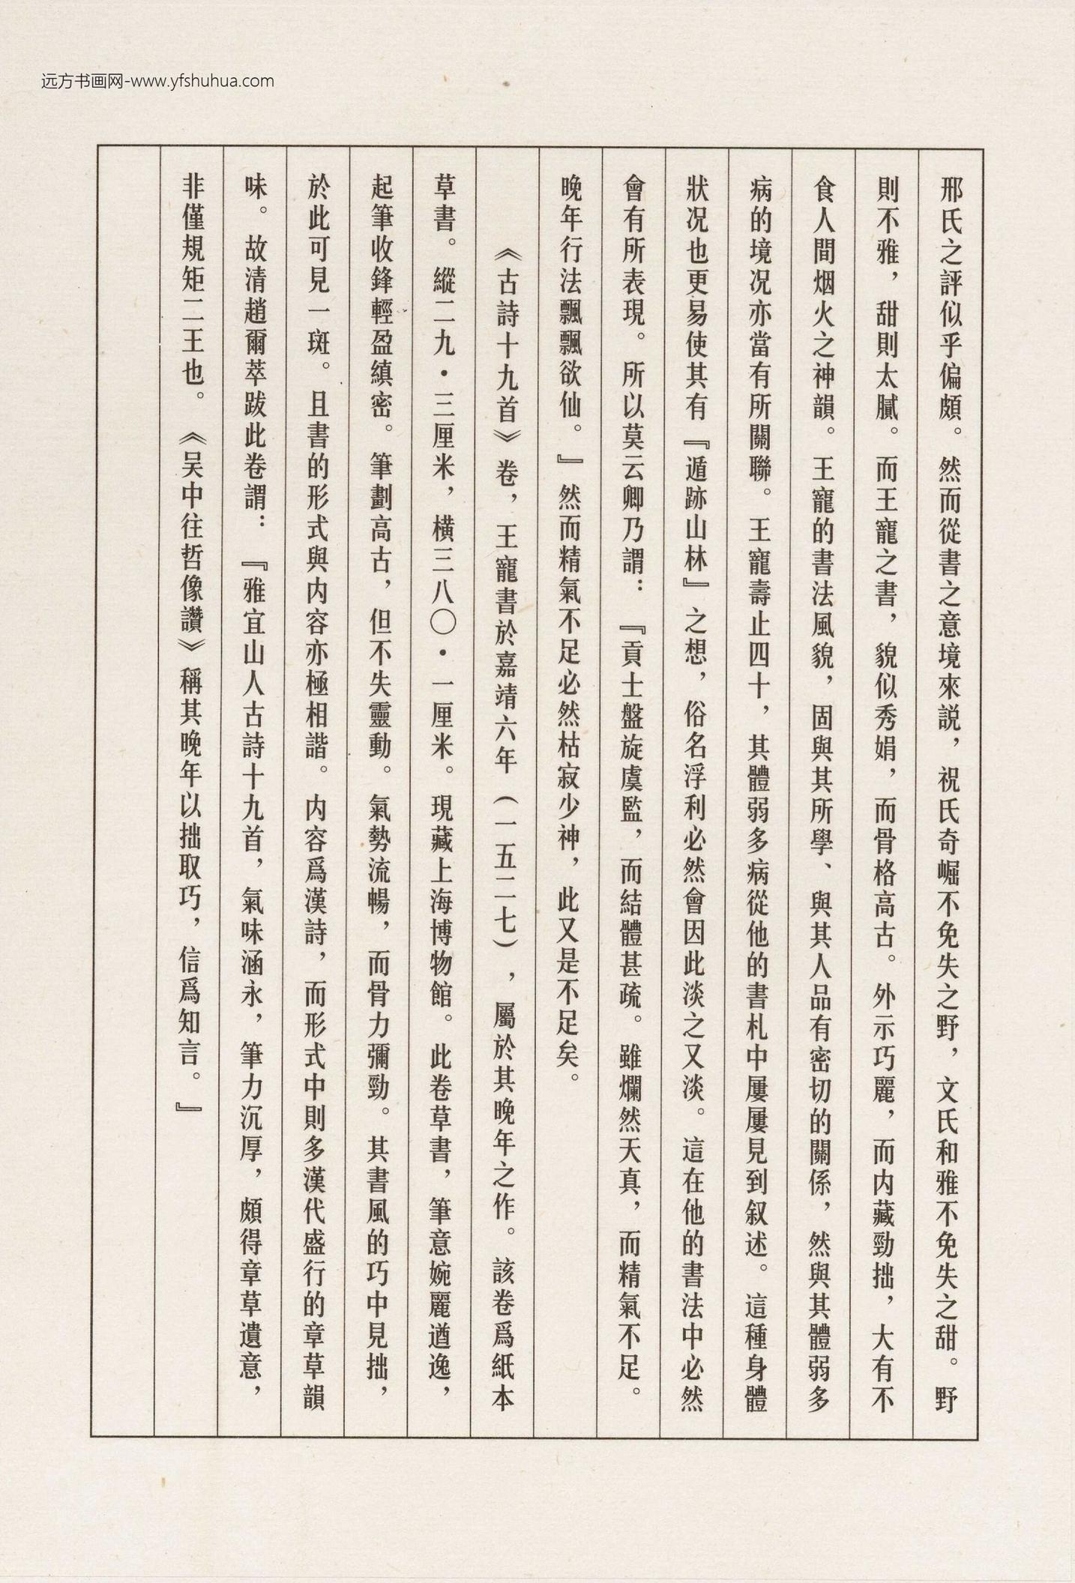 远方书画网-www.yfshuhua.com
邢氏之評似乎偏頗。然而從書之意境來説，祝氏奇崛不免失之野，文氏和雅不免失之甜。野
則不雅，甜則太膩。而王寵之書，貌似秀娟，而骨格高古。外示巧麗，而内藏勁拙，大有不
食人間烟火之神韻。王寵的書法風貌，固與其所學、與其人品有密切的關係，然與其體弱多
病的境况亦當有所關聯。王寵壽止四十，其體弱多病從他的書札中屢屢見到叙述。這種身體
狀况也更易使其有『遁跡山林』之想，俗名浮利必然會因此淡之又淡。這在他的書法中必然
會有所表現。所以莫云卿乃謂：『貢士盤旋虞監，而結體甚疏。雖爛然天真，而精氣不足。
晚年行法飄飄欲仙。』然而精氣不足必然枯寂少神，此又是不足矣。
《古詩十九首》卷，王寵書於嘉靖六年（一五二七），屬於其晚年之作。該卷爲紙本
草書。縱二九·三厘米，橫三八〇·一厘米。現藏上海博物館。此卷草書，筆意婉麗遒逸，
起筆收鋒輕盈縝密。筆劃高古，但不失靈動。氣勢流暢，而骨力彌勁。其書風的巧中見拙，
於此可見一斑。且書的形式與内容亦極相諧。内容爲漢詩，而形式中則多漢代盛行的章草韻
味。故清趙爾萃跋此卷謂：『雅宜山人古詩十九首，氣味涵永，筆力沉厚，頗得章草遺意，
非僅規矩二王也。《吴中往哲像讚》稱其晚年以拙取巧，信爲知言。』